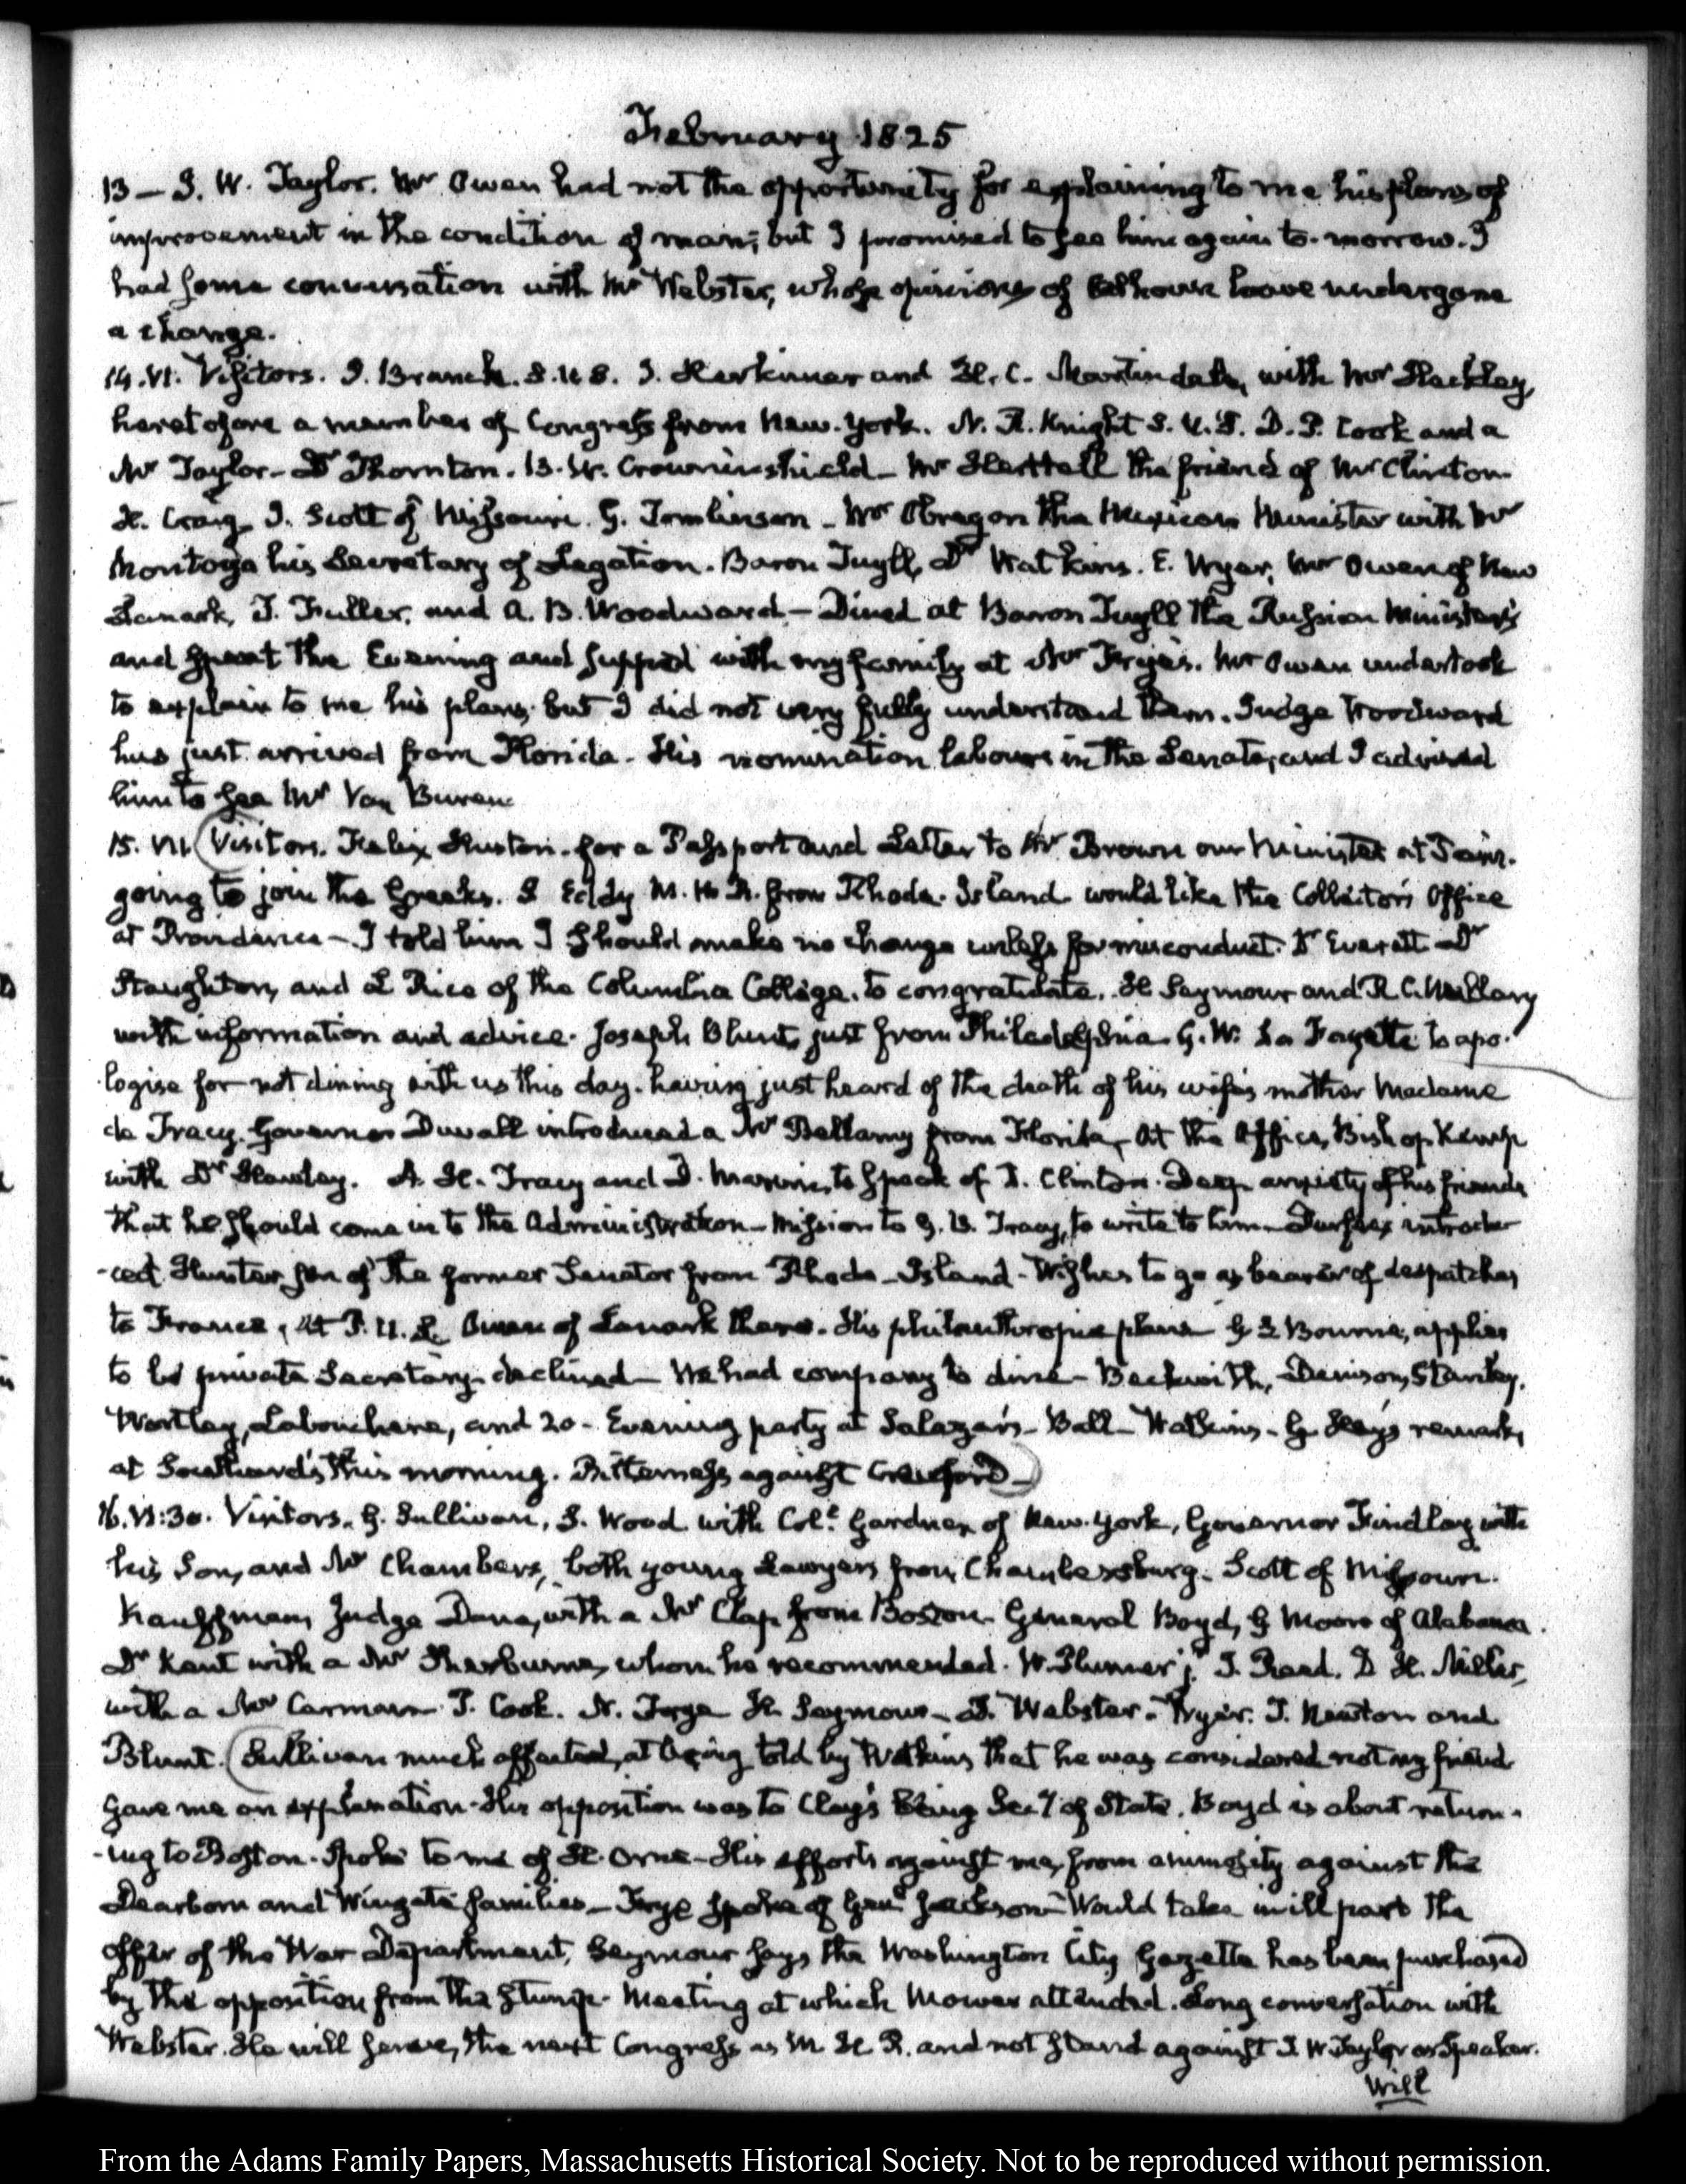 February 1825
13 – J. W. Taylor. Mr Owen had not the opportunity for explaining to me his plans of
improvement in the condition of man; but I promised to see him again to-morrow. I
had some conversation with Mr Webster, whose opinions of Calhoun have undergone
a change.
14. VI. Visitors. J. Branch. S.U.S. J. Herkimer and H. C. Martindale, with Mr Hackley,
heretofore a member of Congress from New-York. N. R. Knight S.U.S. D. P. Cook and a
Mr Taylor – Dr Thornton. B. W. Crowninshield – Mr Herttell the friend of Mr Clinton
H. Craig. J. Scott of Missouri. G. Tomlinson – Mr Obregon the Mexican Minister with Mr
Montoya his Secretary of Legation. Baron Tuyll, Dr Watkins. E. Wyer, Mr Owen of New
Lanark, T. Fuller, and A. B. Woodward – Dined at Baron Tuyll the Russian Minister's
and spent the Evening and supped with my family at Mr Frye's. Mr Owen undertook
to explain to me his plans, but I did not very fully understand them. Judge Woodward
has just arrived from Florida. His nomination labours in the Senate, and I advised
him to see Mr Van Buren
15. VII. (Visitors. Felix Huston. for a Passport and Letter to Mr Brown our Minister at Paris.
going to join the Greeks. S Eddy M. H. R. from Rhode-Island would like the Collector's Office
at Providence – I told him I should make no change unless for misconduct. Everett – Dr
Staughton, and L Rice of the Columbia College, to congratulate. H Seymour and R. C. Mallary
with information and advice. Joseph Blunt, just from Philadelphia. G. W. La Fayette to apo-
logise for not dining with us this day. having just heard of the death of his wife's mother Madame
de Tracy. Governor Duvall introduced a Mr Bellamy from Florida, At the Office, Bishop Kemp
with Dr Hawley. A. H. Tracy and D. Marvin, to speak of D. Clinton. Deep anxiety of his friends
that he should come in to the Administration – Mission to G. B. Tracy, to write to him. Durfee introdu-
-ced Hunter son of the former Senator from Rhode-Island – Wishes to go as bearer of despatches
to France, At P. U. S. Owen of Lanark there. His philanthropic plans G S Bourne, applies
to be private Secretary – declined – We had company to dine – Beckwith, Denison, Stanley,
Wortley, Labouchere, and 20 – Evening party at Salazar's – Ball – Watkins – G. Hay's remarks
at Southard's this morning. Bitterness against Crawford –)
16. VI:30. Visitors. G. Sullivan, S. Wood with Coll. Gardner of New-York, Governor Findlay with
his Son, and Mr Chambers, both young Lawyers from Chambersburg. Scott of Missouri.
Kauffman, Judge Dana, with a Mr Clap from Boston. General Boyd, G Moore of Alabama.
Dr Kent with a Mr Sherburne, whom he recommended. W. Plumer jr. J. Reed. D H. Miller,
with a Mr Carman. J. Cook. N. Frye H. Seymour – D. Webster. Wyer. T. Newton and
Blunt. (Sullivan much affected, at being told by Watkins that he was considered not my friend
gave me an explanation – His opposition was to Clay's being Secy of State. Boyd is about return-
-ing to Boston. Spoke to me of H. Orne – His efforts against me, from animosity against the
Dearborn and Wingate families – Frye spoke of Genl Jackson – Would take in ill part the
offer of the War Department, Seymour says the Washington City Gazette has been purchased
by the opposition from the stump. Meeting at which Mower attended. Long conversation with
Webster. He will serve, the next Congress as M H R. and not stand against J. W. Taylor as Speaker.
Will
From the Adams Family Papers, Massachusetts Historical Society. Not to be reproduced without permission.